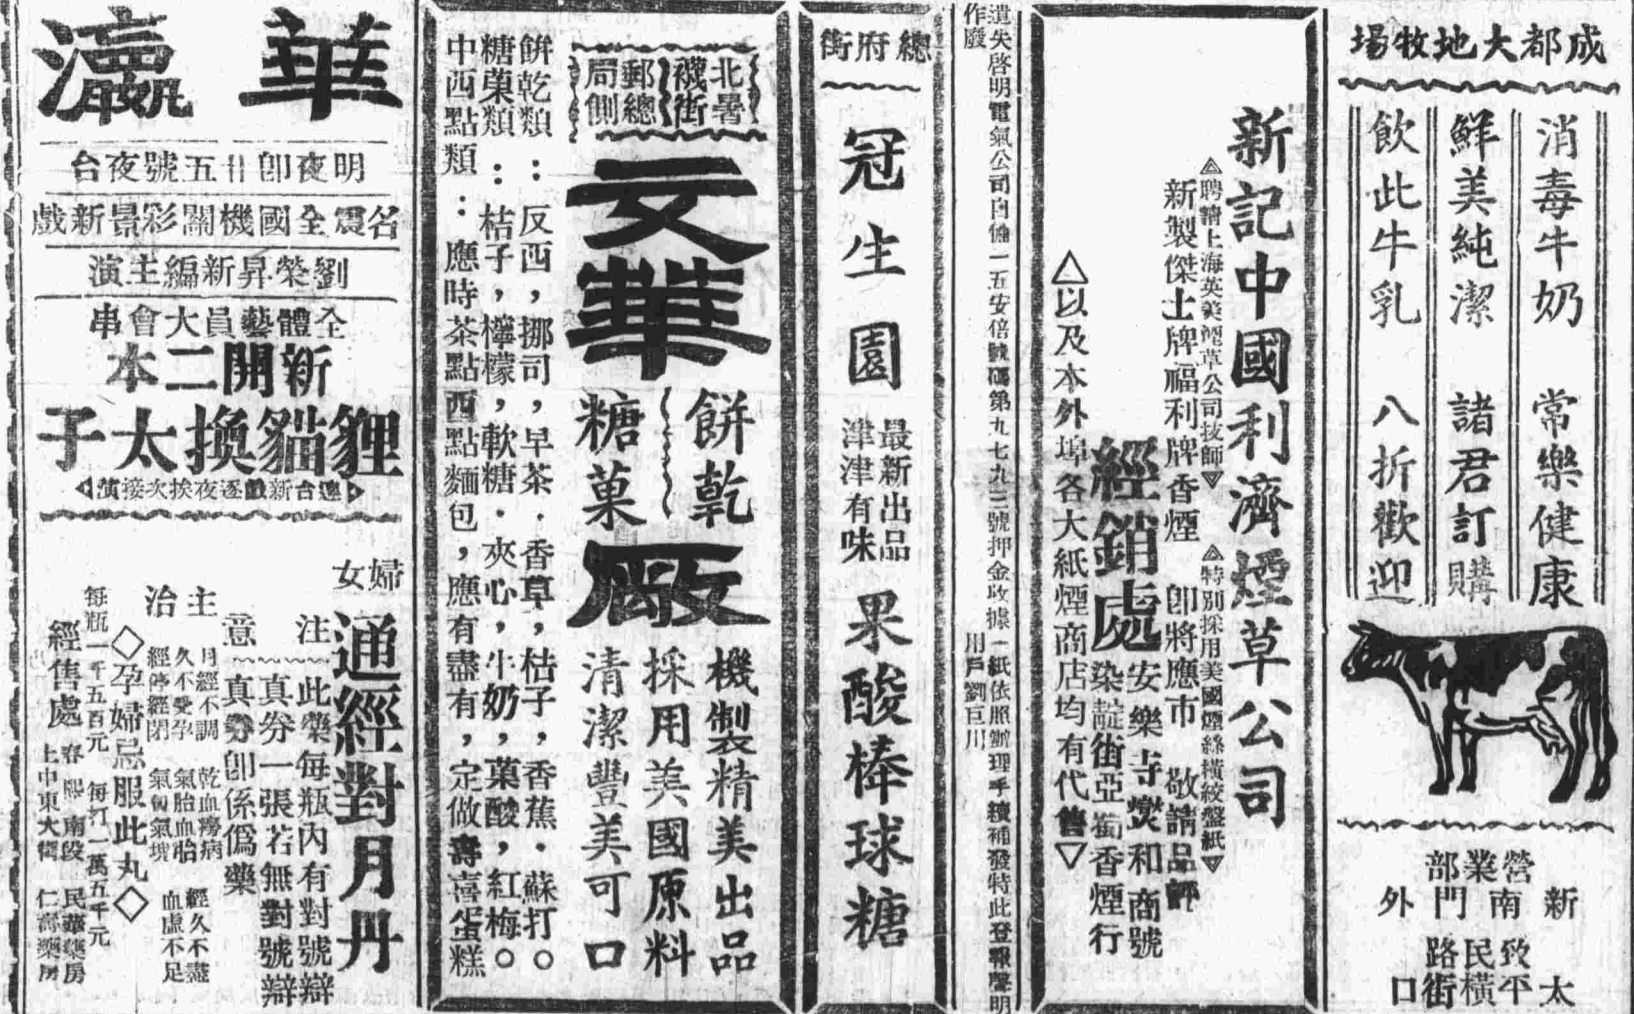 成都大地牧場
消毒牛奶　常樂健康
鮮美純潔　諸君訂購
飲此牛乳　八折歡迎
營業部
新南門外
致民路
太平橫街口
新記中國利濟煙草公司
聘請上海英美煙草公司技師
特別採用美國煙絲橫絞盤紙
新製傑士牌福利牌香煙　卽將應市　敬請品評
經銷處
安樂寺爕和商號
染靛街亞蜀香煙行
△以及本外埠各大紙煙商店均有代售▽
遺失啓明電氣公司自備一五安倍號碼第九七九三號押金收據一紙依照辦理手續補發特此登報聲明
作廢
川戶劉巨川
總府街
冠生園
最新出品
津津有味
果酸棒球糖
北暑襪街
郵總局側
文華
餅乾
糖菓
廠
機製精美出品
採用美國原料
清潔豐美可口
餅乾類：反西，挪司，早茶．香草，桔子，香蕉．蘇打。
糖菓類：桔子，檸檬，軟糖．夾心，牛奶，菓酸，紅梅。
中西點類：應時茶點西點麵包，應有盡有，定做壽喜蛋糕
華瀛
明夜卽廿五號夜台
名震全國機關彩景新戲
劉榮昇新編主演
全體藝員大會串
新開二本
狸貓換太子
連台新戲逐夜挨次接演
婦女
通經對月丹
注意
此藥每瓶內有對號辯
真券一張若無對號辯
真券卽係僞藥
主治
月經不調　乾血癆病　經久不盡
久不受孕　氣胎血胎　血虛不足
經停經閉　氣匈氣塊
◇孕婦忌服此丸◇
每瓶一千五百元　每打一萬五千元
經售處
春熙南段　民華藥房
上中東大街　仁壽藥房